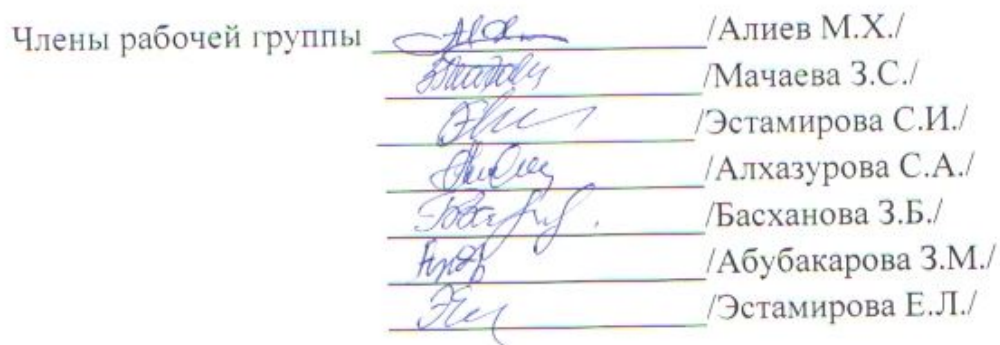 Члены рабочей группы /Алиев М.Х./
/Мачаева З.С./
/Эстамирова С.И./
/Алхазурова С.А./
/Басханова З.Б./
/Абубакарова З.М./
/Эстамирова Е.Л./